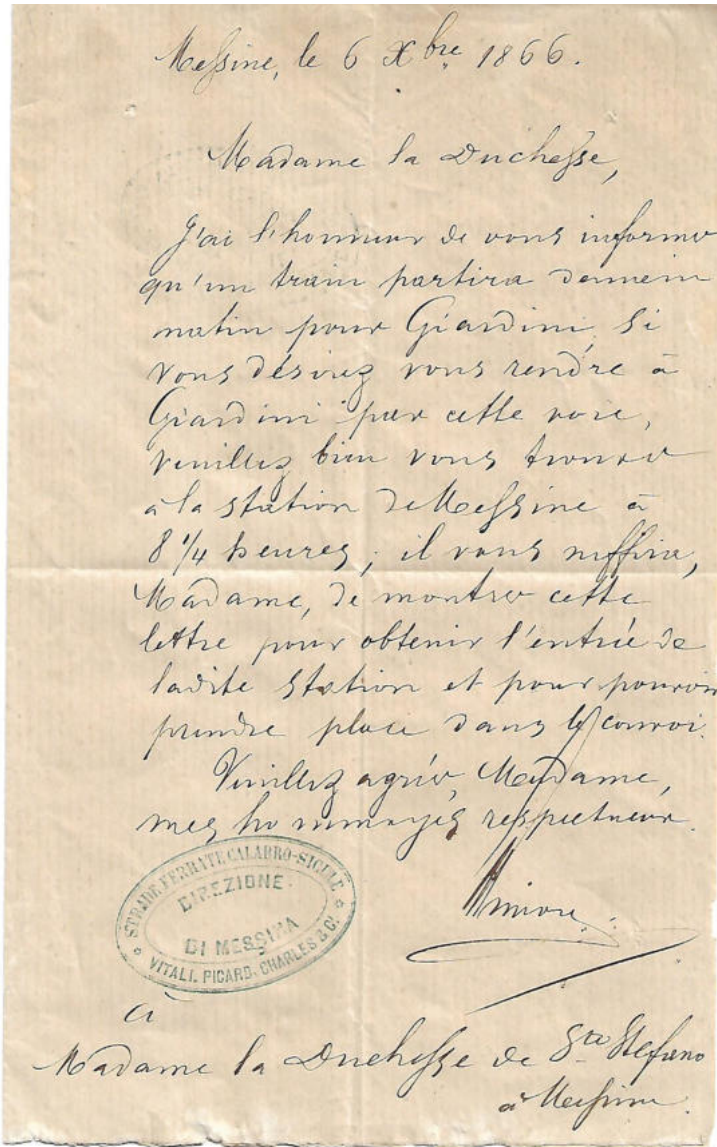 Messine, le 6 Xbre 1866.
Madame la Duchesse,
J'ai l'honneur de vous informer
qu'un train partira demain
matin pour Giardini, Si
vous désirez vous rendre à
Giardini par cette voie,
veuillez bien vous trouver
à la station de Messine à
8 1/4 heures; il vous suffira,
Madame, de montrer cette
lettre pour obtenir l'entrée de
ladite station et pour pouvoir
prendre place dans le convoi.
Veuillez agréer, Madame,
mes hommages respectueux.
STRADE FERRATE CALABRO-SICULE
DIREZIONE
DI MESSINA
VITALI. PICARD, CHARLES & C.
à
Madame la Duchesse de Sto Stefano
à Messine.